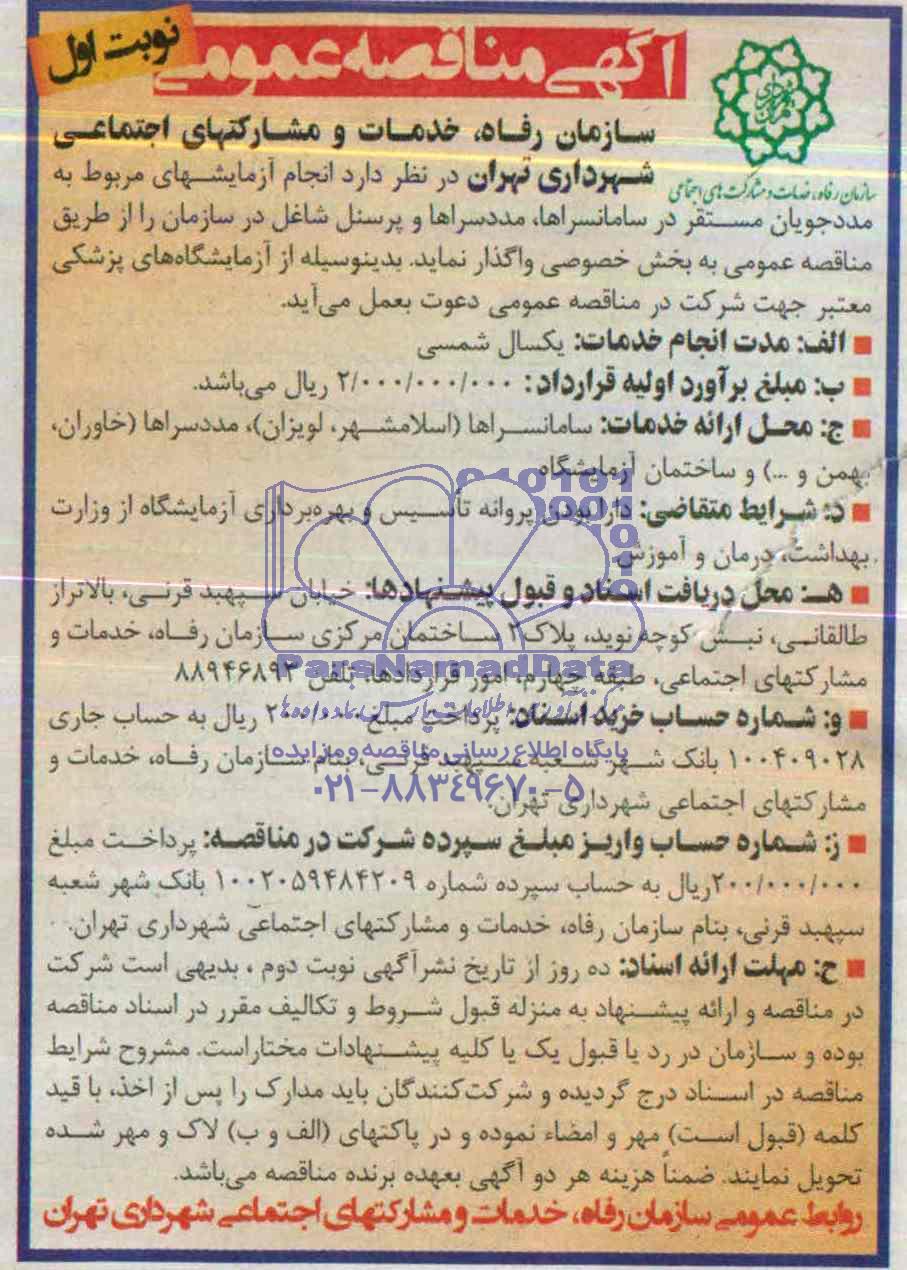 نوبت اول
آگهی مناقصه عمومی
سازمان رفاه، خدمات و مشارکت‌های اجتماعی
سازمان رفاه، خدمات و مشارکتهای اجتماعی
شهرداری تهران در نظر دارد انجام آزمایشهای مربوط به
مددجویان مستقر در سامانسراها، مددسراها و پرسنل شاغل در سازمان را از طریق
مناقصه عمومی به بخش خصوصی واگذار نماید. بدینوسیله از آزمایشگاه‌های پزشکی
معتبر جهت شرکت در مناقصه عمومی دعوت بعمل می‌آید.
■ الف: مدت انجام خدمات: یکسال شمسی
■ ب: مبلغ برآورد اولیه قرارداد: ۲/۰۰۰/۰۰۰/۰۰۰ ریال می‌باشد.
■ ج: محل ارائه خدمات: سامانسراها (اسلامشهر، لویزان)، مددسراها (خاوران،
بهمن و ...) و ساختمان آزمایشگاه
■ د: شرایط متقاضی: دارا بودن پروانه تأسیس و بهره‌برداری آزمایشگاه از وزارت
بهداشت، درمان و آموزش.
■ هـ: محل دریافت اسناد و قبول پیشنهادها: خیابان سپهبد قرنی، بالاتراز
طالقانی، نبش کوچه نوید، پلاک۲ ساختمان مرکزی سازمان رفاه، خدمات و
ParsNamadData
مشارکتهای اجتماعی، طبقه چهارم، امور قراردادها، تلفن ۸۸۹۴۶۸۹۳
■ و: شماره حساب خرید اسناد: پرداخت مبلغ ۲۰۰/۰۰۰ ریال به حساب جاری
پایگاه اطلاع رسانی مناقصه و مزایده
۱۰۰۴۰۹۰۲۸ بانک شهر شعبه سپهبد قرنی، بنام سازمان رفاه، خدمات و
۰۲۱-۸۸۳۴۹۶۷۰-۵
مشارکتهای اجتماعی شهرداری تهران.
■ ز: شماره حساب واریز مبلغ سپرده شرکت در مناقصه: پرداخت مبلغ
۲۰۰/۰۰۰/۰۰۰ریال به حساب سپرده شماره ۱۰۰۲۰۵۹۴۸۴۲۰۹ بانک شهر شعبه
سپهبد قرنی، بنام سازمان رفاه، خدمات و مشارکتهای اجتماعی شهرداری تهران.
■ ح: مهلت ارائه اسناد: ده روز از تاریخ نشرآگهی نوبت دوم ، بدیهی است شرکت
در مناقصه و ارائه پیشنهاد به منزله قبول شروط و تکالیف مقرر در اسناد مناقصه
بوده و سازمان در رد یا قبول یک یا کلیه پیشنهادات مختاراست. مشروح شرایط
مناقصه در اسناد درج گردیده و شرکت‌کنندگان باید مدارک را پس از اخذ، با قید
کلمه (قبول است) مهر و امضاء نموده و در پاکتهای (الف و ب) لاک و مهر شده
تحویل نمایند. ضمناً هزینه هر دو آگهی بعهده برنده مناقصه می‌باشد.
روابط عمومی سازمان رفاه، خدمات و مشارکتهای اجتماعی شهرداری تهران